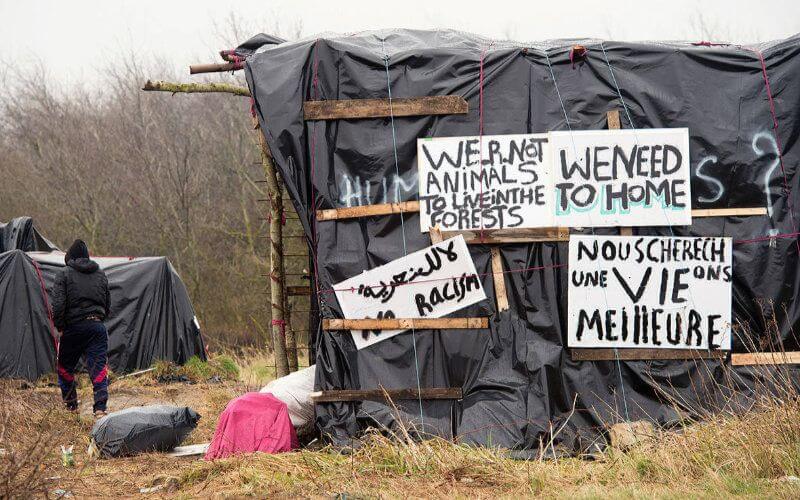 WE R NOT
ANIMALS
TO LIVE IN THE
FORESTS
WE NEED
TO HOME
للعنصرية
NO RACISM
NOUS CHERECH
UNE VIE ONS
MEIllEURE
HUM
s ?